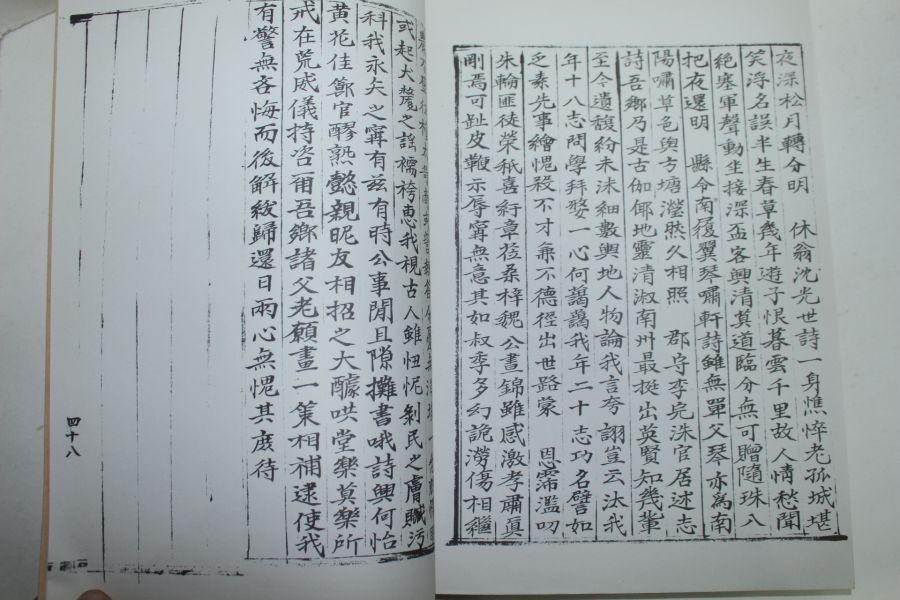 夜深松月轉分明 休翁沈光世詩一身憔悴老孤城堪
笑浮名誤半生春草幾年遊子恨暮雲千里故人情愁聞
絶塞軍聲動坐接深盃客興清莫道臨分無可贈隨珠八
把夜還明 縣令南履翼琴嘯軒詩雖無單父琴亦爲南
陽嘯草色與方塘瀅然久相照 郡守李完洙官居述志
詩吾鄉乃是古伽倻地靈清淑南州最挺出英賢知幾輩
至今遺馥紛未沫細數輿地人物論我言夸詡豈云汰我
年十八志問學拜婺一心何藹藹我年二十志功名譬如
乏素先事繪愧殺不才兼不德徑出世路蒙 恩霈濫叨
朱輪匪徒榮秖喜紆章莅桑梓魏公晝錦雖感激孝肅眞
剛焉可趾皮鞭示辱寗無意其如叔季多幻詭澇傷相繼
或起犬氂之謠襦袴恵我視古人雖忸怩剝民之膚贓污
科我永矢之寗有兹有時公事閒且隙攤書哦詩興何怡
黄花佳節官醪熟懿親昵友相招之大醵哄堂樂莫樂所
戒在荒威儀持咨爾吾鄉諸父老願畫一策相補逮使我
有警無吝悔而後解紱歸還日兩心無愧其庻待
四十八